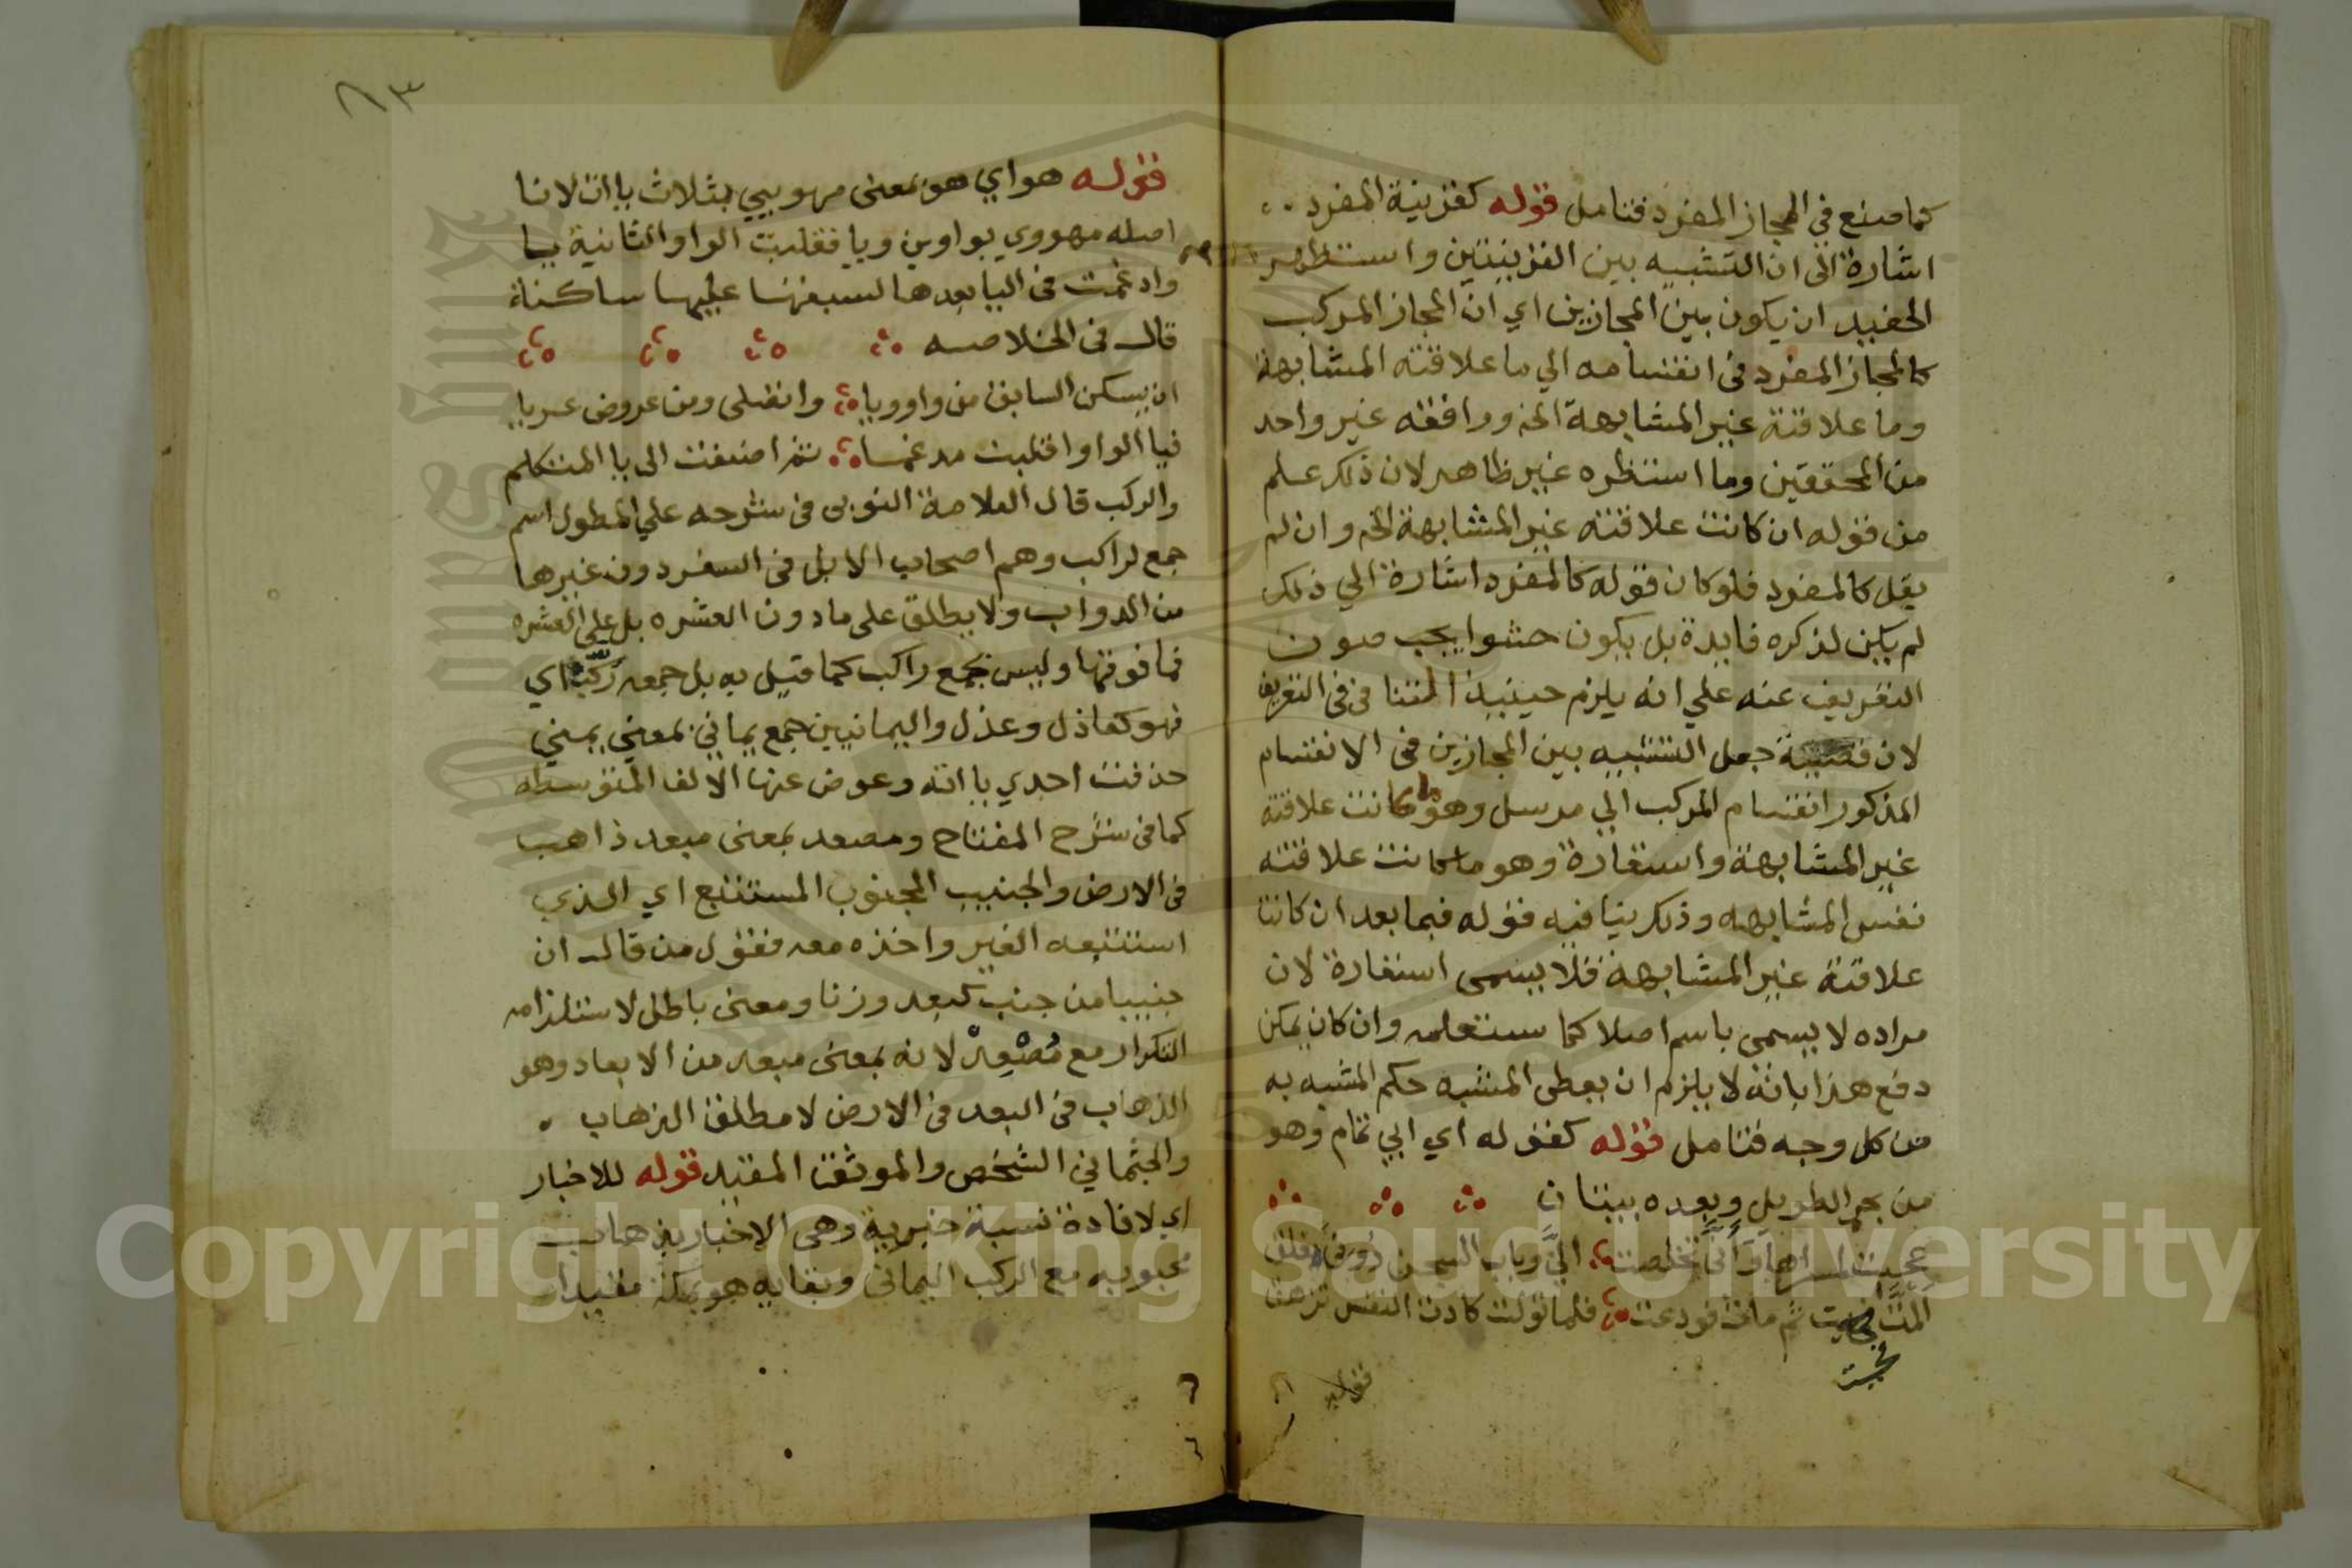 كما صنع في المجاز المفرد فتامل قوله كقرينية المفرد
اشارة الى ان التشبيه بين القرينتين واستظهر
الحفيد ان يكون بين المجازين اي ان المجاز المركب
كالمجاز المفرد في انقسامه الي ما علاقته المشابهة
وما علاقتة غير المشابهة الخ ووافقه غير واحد
من المحققين وما استظهره غير ظاهر لان ذلك علم
من قوله ان كانت علاقته غير المشابهة الخ وان لم
يقل كالمفرد فلو كان قوله كالمفرد اشارة الي ذلك
لم يكن لذكره فايدة بل يكون حشوا يجب صون
التعريف عنه علي انه يلزم حينيذ التنافي في التعريف
لان قضية جعل التشبيه بين المجازين في الانقسام
المذكور انقسام المركب الي مرسل وهو ما كانت علاقتة
غير المشابهة واستعارة وهو ما كانت علاقته
نفس المشابهه وذلك ينافيه قوله فيما بعد ان كانت
علاقتة غير المشابهة فلا يسمى استعارة لان
مراده لا يسمى باسم اصلا كما ستعلمه وان كان يمكن
دفع هذا بانه لا يلزم ان يعطى المشبه حكم المشبه به
من كل وجه فتامل قوله كقوله اي ابي تمام وهو
من بحر الطويل وبعده بيتان
عجبت لمسراها وانى تخلصت الي وباب السجن دوني مغلق
المت فحيت ثم قامت فودعت فلما تولت كادت النفس تزهق
فحيت
قوله
٨٣
قوله هواي هو بمعنى مهويي بثلاث ياات لانا
اصله مهووي بواوين ويا فقلبت الواو الثانية يا
وادغمت في اليا بعدها لسبقها عليها ساكنة
قال في الخلاصه
ان يسكن السابق من واو ويا واتصلى ومن عروض عريا
فيا الواو اقلبت مدغما ثم اضيفت الى يا المتكلم
والركب قال العلامة النوبي في شرحه علي المطول اسم
جمع لراكب وهم اصحاب الابل في السفر دون غيرها
من الدواب ولا يطلق على ما دون العشره بل علي العشره
فما فوقها وليس بجمع راكب كما قيل به بل جمعه ركب اي
فهو كعاذل وعذل واليمانيين جمع يماني بمعني يمني
حذفت احدي يااته وعوض عنها الالف المتوسطه
كما في شرح المفتاح ومصعد بمعنى مبعد ذاهب
في الارض والجنيب المجنوب المستتبع اي الذي
استتبعه الغير واخذه معه فقول من قال ان
جنيبا من جنب كبعد وزنا ومعنى باطل لاستلزامه
التكرار مع مصعد لانه بمعنى مبعد من الابعاد وهو
الذهاب في البعد في الارض لا مطلق الذهاب
والجثماني الشخص والموثق المقيد قوله للاخبار
اي لافادة نسبة خبرية وهى الاخبار بذهاب
محبوبه مع الركب اليماني وبقايه هو بمكة مقيدا